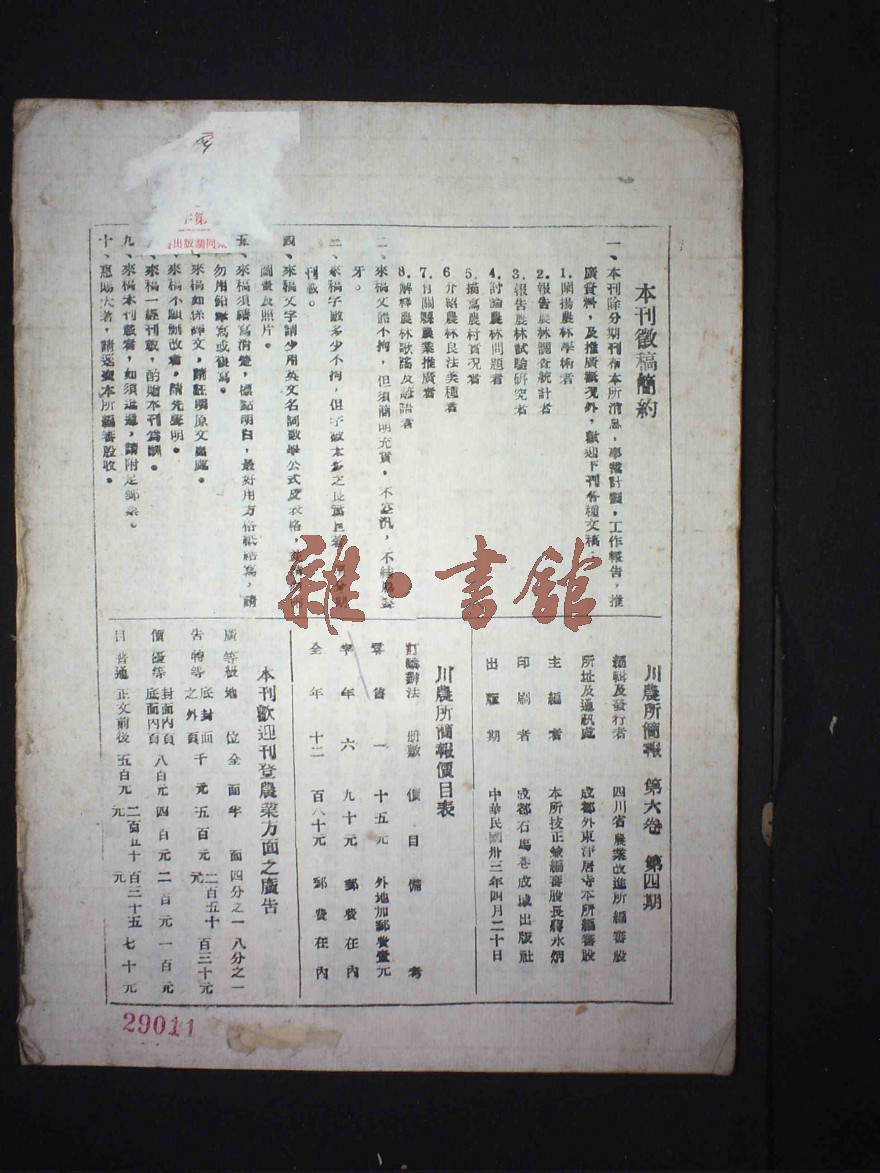 本刊徵稿簡約
一、本刊除分期刊布本所消息，事業計劃，工作報告，推
廣資料，及推廣概况外，歡迎下列各種文稿：
1.闡揚農林學術者
2.報告農林調查統計者
3.報告農林試驗研究者
4.討論農林問題者
5.描寫農村實况者
6.介紹農林良法美種者
7.有關縣農業推廣者
8.解釋農林歌謠及諺語者
二、來稿文體不拘，但須簡明充實，不空汎，不
牙。
三、來稿字數多少不拘，但字數太多之長篇巨著，
刊載。
四、來稿文字請少用英文名詞數學公式及表格，
圖畫及照片。
五、來稿須繕寫清楚，標點明白，最好用方格紙繕寫，請
勿用鉛筆寫或複寫。
來稿如係譯文，請註明原文出處。
來稿不願刪改者，請先聲明。
來稿一經刊載，酌贈本刊為酬。
九、來稿本刊載者，如須退還，請附足郵票。
十、惠賜大著，請逕寄本所編審股收。
川農所簡報 第六卷 第四期
編輯及發行者 四川省農業改進所編審股
所址及通訊處 成都外東淨居寺本所編審股
主編者 本所技正兼編審股長蔣永炳
印刷者 成都石馬巷成城出版社
出版期 中華民國卅三年四月二十日
川農所簡報價目表
訂購辦法 册數 價目 備考
零售 一 十五元 外地加郵費壹元
半年 六 九十元 郵費在內
全年 十二 百八十元 郵費在內
本刊歡迎刊登農業方面之廣告
廣 等級 地位 全面 半面 四分之一 八分之一
告 特等 底封面之外頁 千元 五百元 二百五十元 百三十元
價 優等 封面內頁 底面內頁 八百元 四百元 二百元 一百元
目 普通 正文前後 五百元 二百五十元 百三十五元 七十元
雜·書館
29011